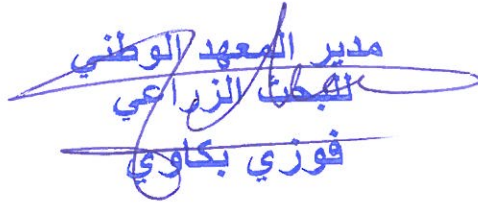 مدير المعهد الوطني
للبحث الزراعي
فوزي بكاوي